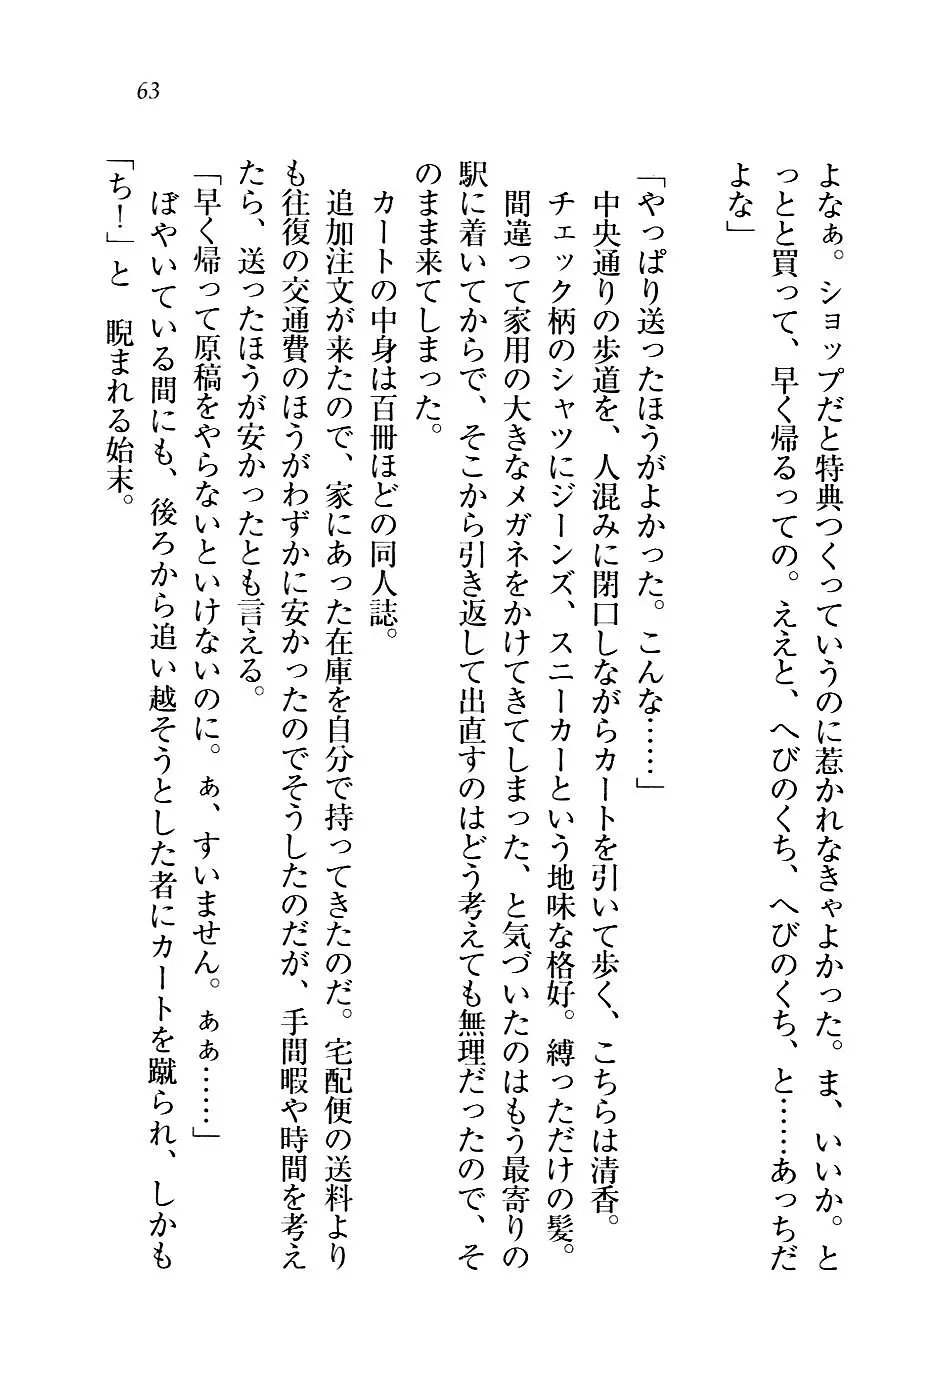 63
よなぁ。ショップだと特典つくっていうのに惹かれなきゃよかった。ま、いいか。と
っとと買って、早く帰るっての。ええと、へびのくち、へびのくち、と……あっちだ
よな」
「やっぱり送ったほうがよかった。こんな……」
中央通りの歩道を、人混みに閉口しながらカートを引いて歩く、こちらは清香。
チェック柄のシャツにジーンズ、スニーカーという地味な格好。縛っただけの髪。
間違って家用の大きなメガネをかけてきてしまった、と気づいたのはもう最寄りの
駅に着いてからで、そこから引き返して出直すのはどう考えても無理だったので、そ
のまま来てしまった。
カートの中身は百冊ほどの同人誌。
追加注文が来たので、家にあった在庫を自分で持ってきたのだ。宅配便の送料より
も往復の交通費のほうがわずかに安かったのでそうしたのだが、手間暇や時間を考え
たら、送ったほうが安かったとも言える。
「早く帰って原稿をやらないといけないのに。ぁ、すいません。ぁぁ……」
ぼやいている間にも、後ろから追い越そうとした者にカートを蹴られ、しかも
「ち！」と　睨まれる始末。